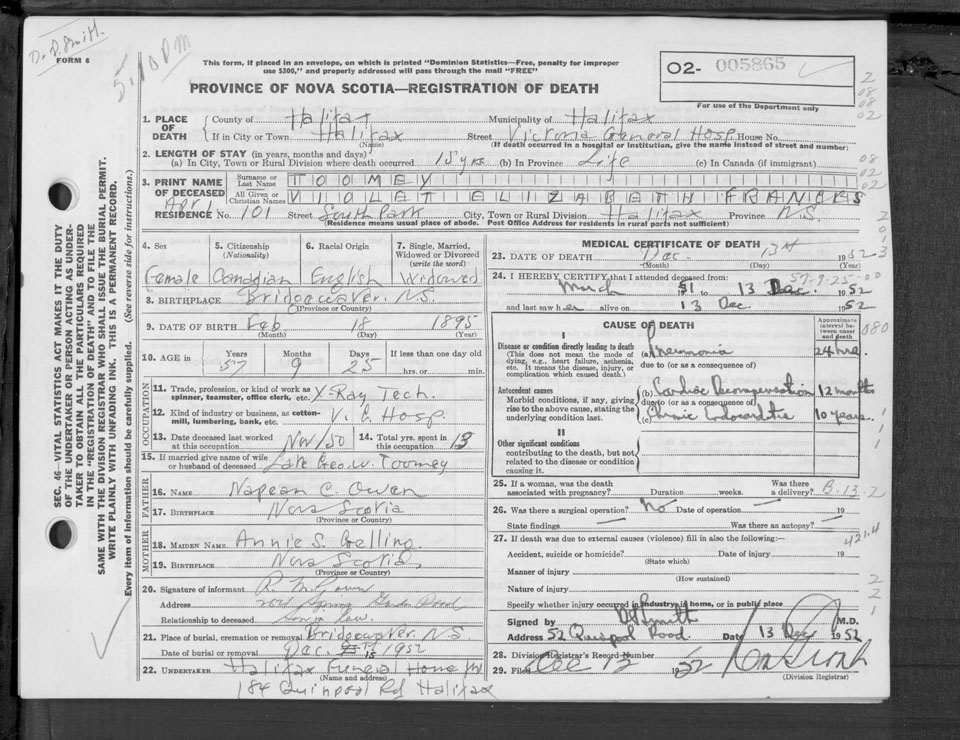 Dr. D. Smith.
FORM 6
5:10 PM
This form, if placed in an envelope, on which is printed "Dominion Statistics—Free, penalty for improper
use $300," and properly addressed will pass through the mail "FREE"
PROVINCE OF NOVA SCOTIA—REGISTRATION OF DEATH
02- 005865
For use of the Department only
1. PLACE OF DEATH County of Halifax Municipality of Halifax
If in City or Town Halifax Street Victoria General Hosp House No.
(Name) (If death occurred in a hospital or institution, give the name instead of street and number)
2. LENGTH OF STAY (in years, months and days)
(a) In City, Town or Rural Division where death occurred 15 yrs (b) In Province Life (c) In Canada (if immigrant)
3. PRINT NAME OF DECEASED Surname or Last Name TOOMEY
All Given or Christian Names VIOLET ELIZABETH FRANCES
Apt 1
RESIDENCE No. 101 Street South Park City, Town or Rural Division Halifax Province N.S.
(Residence means usual place of abode. Post Office Address for residents in rural parts not sufficient)
4. Sex 5. Citizenship (Nationality) 6. Racial Origin 7. Single, Married, Widowed or Divorced (write the word)
Female Canadian English Widowed
8. BIRTHPLACE Bridgewater. N.S.
(Province or Country)
9. DATE OF BIRTH Feb 18 1895
(Month) (Day) (Year)
10. AGE in Years Months Days If less than one day old
57 9 25 hrs. or min.
OCCUPATION
11. Trade, profession, or kind of work as spinner, teamster, office clerk, etc. X-Ray Tech.
12. Kind of industry or business, as cotton-mill, lumbering, bank, etc. V. G. Hosp.
13. Date deceased last worked at this occupation Nov/50 14. Total yrs. spent in this occupation 18
15. If married give name of wife or husband of deceased Late Geo. W. Toomey
FATHER
16. NAME Napean C. Owen
17. BIRTHPLACE Nova Scotia
(Province or Country)
MOTHER
18. MAIDEN NAME Annie S. Gelling
19. BIRTHPLACE Nova Scotia
(Province or Country)
20. Signature of informant
Address Spring Garden Road
Relationship to deceased
21. Place of burial, cremation or removal Bridgewater N.S.
Date of burial or removal Dec. 15 1952
22. UNDERTAKER Halifax Funeral Home
(Name and address)
184 Quinpool Rd Halifax
MEDICAL CERTIFICATE OF DEATH
23. DATE OF DEATH Dec. 13th 1952
(Month) (Day) (Year)
24. I HEREBY CERTIFY, that I attended deceased from: 57-9-25-00
March 1951 to 13 Dec. 1952
and last saw her alive on 13 Dec 1952
CAUSE OF DEATH
Approximate interval between onset and death
I
Disease or condition directly leading to death (a) Pneumonia 24 hrs.
(This does not mean the mode of dying, e.g., heart failure, asthenia, etc. It means the disease, injury, or complication which caused death.)
due to (or as a consequence of)
Antecedent causes (b) Cardiac Decompensation 12 months
Morbid conditions, if any, giving rise to the above cause, stating the underlying condition last.
due to (or as a consequence of)
(c) Chronic Endocarditis 10 years.
II
Other significant conditions
contributing to the death, but not
related to the disease or condition
causing it.
25. If a woman, was the death associated with pregnancy? Duration weeks. Was there a delivery? B-13-2
26. Was there a surgical operation? No Date of operation 19
State findings Was there an autopsy?
27. If death was due to external causes (violence) fill in also the following:—
421.4
Accident, suicide or homicide? Date of injury 19
(State which)
Manner of injury
(How sustained)
Nature of injury
Specify whether injury occurred in industry, in home, or in public place
Signed by D Smith M.D.
Address 52 Quinpool Road. Date 13 Dec 1952
28. Division Registrar's Record Number
29. Filed Dec 1952
(Division Registrar)
SEC. 46—VITAL STATISTICS ACT MAKES IT THE DUTY
OF THE UNDERTAKER OR PERSON ACTING AS UNDER-
TAKER TO OBTAIN ALL THE PARTICULARS REQUIRED
IN THE "REGISTRATION OF DEATH" AND TO FILE THE
SAME WITH THE DIVISION REGISTRAR WHO SHALL ISSUE THE BURIAL PERMIT.
WRITE PLAINLY WITH UNFADING INK. THIS IS A PERMANENT RECORD.
Every item of information should be carefully supplied. (See reverse side for instructions.)
2
08
08
02
08
02
02
080